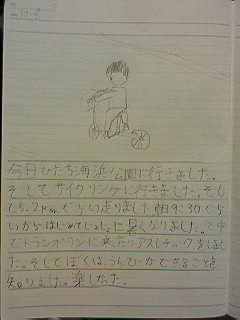 10.8
今日ひたち海浜公園に行きました。
そしてサイクリングに行きました。そし
て5.2kmぐらい走りました朝9:30ぐら
いからはじめて
に暑くなりました。と中
でトランポリンに乗ったりアスレチックをしまし
た。そしてぼくは、うんていができることを
知りました。楽しかった。